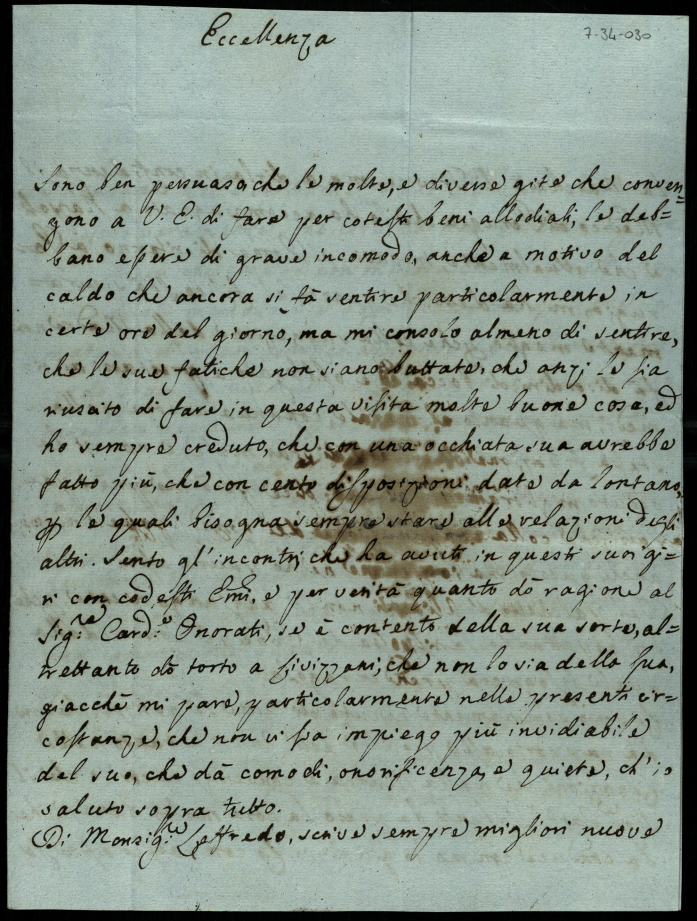 Eccellenza
7-34-030
Sono ben persuaso, che le molte, e diverse gite che conven=
gono a V. E. di fare per cotesti beni allodiali, le deb=
bano essere di grave incomodo, anche a motivo del
caldo che ancora si fà sentire particolarmente in
certe ore del giorno, ma mi consolo almeno di sentire,
che le sue fatiche non siano buttate, che anzi le sia
riuscito di fare in questa visita molte buone cose, ed
ho sempre creduto, che con una occhiata sua avrebbe
fatto più, che con cento disposizioni date da lontano,
le quali bisogna sempre stare alle relazioni degli
altri. Sento gl'incontri che ha avuti in questi suoi gi=
ri con codesti Emi, e per verità quanto dò ragione al
Sig.re Card.e Onorati, se è contento della sua sorte, al=
trettanto dò torto a Livizzani, che non lo sia della sua,
giacchè mi pare, particolarmente nelle presenti cir=
costanze, che non vi sia impiego più invidiabile
del suo, che dà comodi, onorificenza, e quiete, ch'io
saluto sopra tutto.
Di Monsig.re Loffredo, scrive sempre migliori nuove